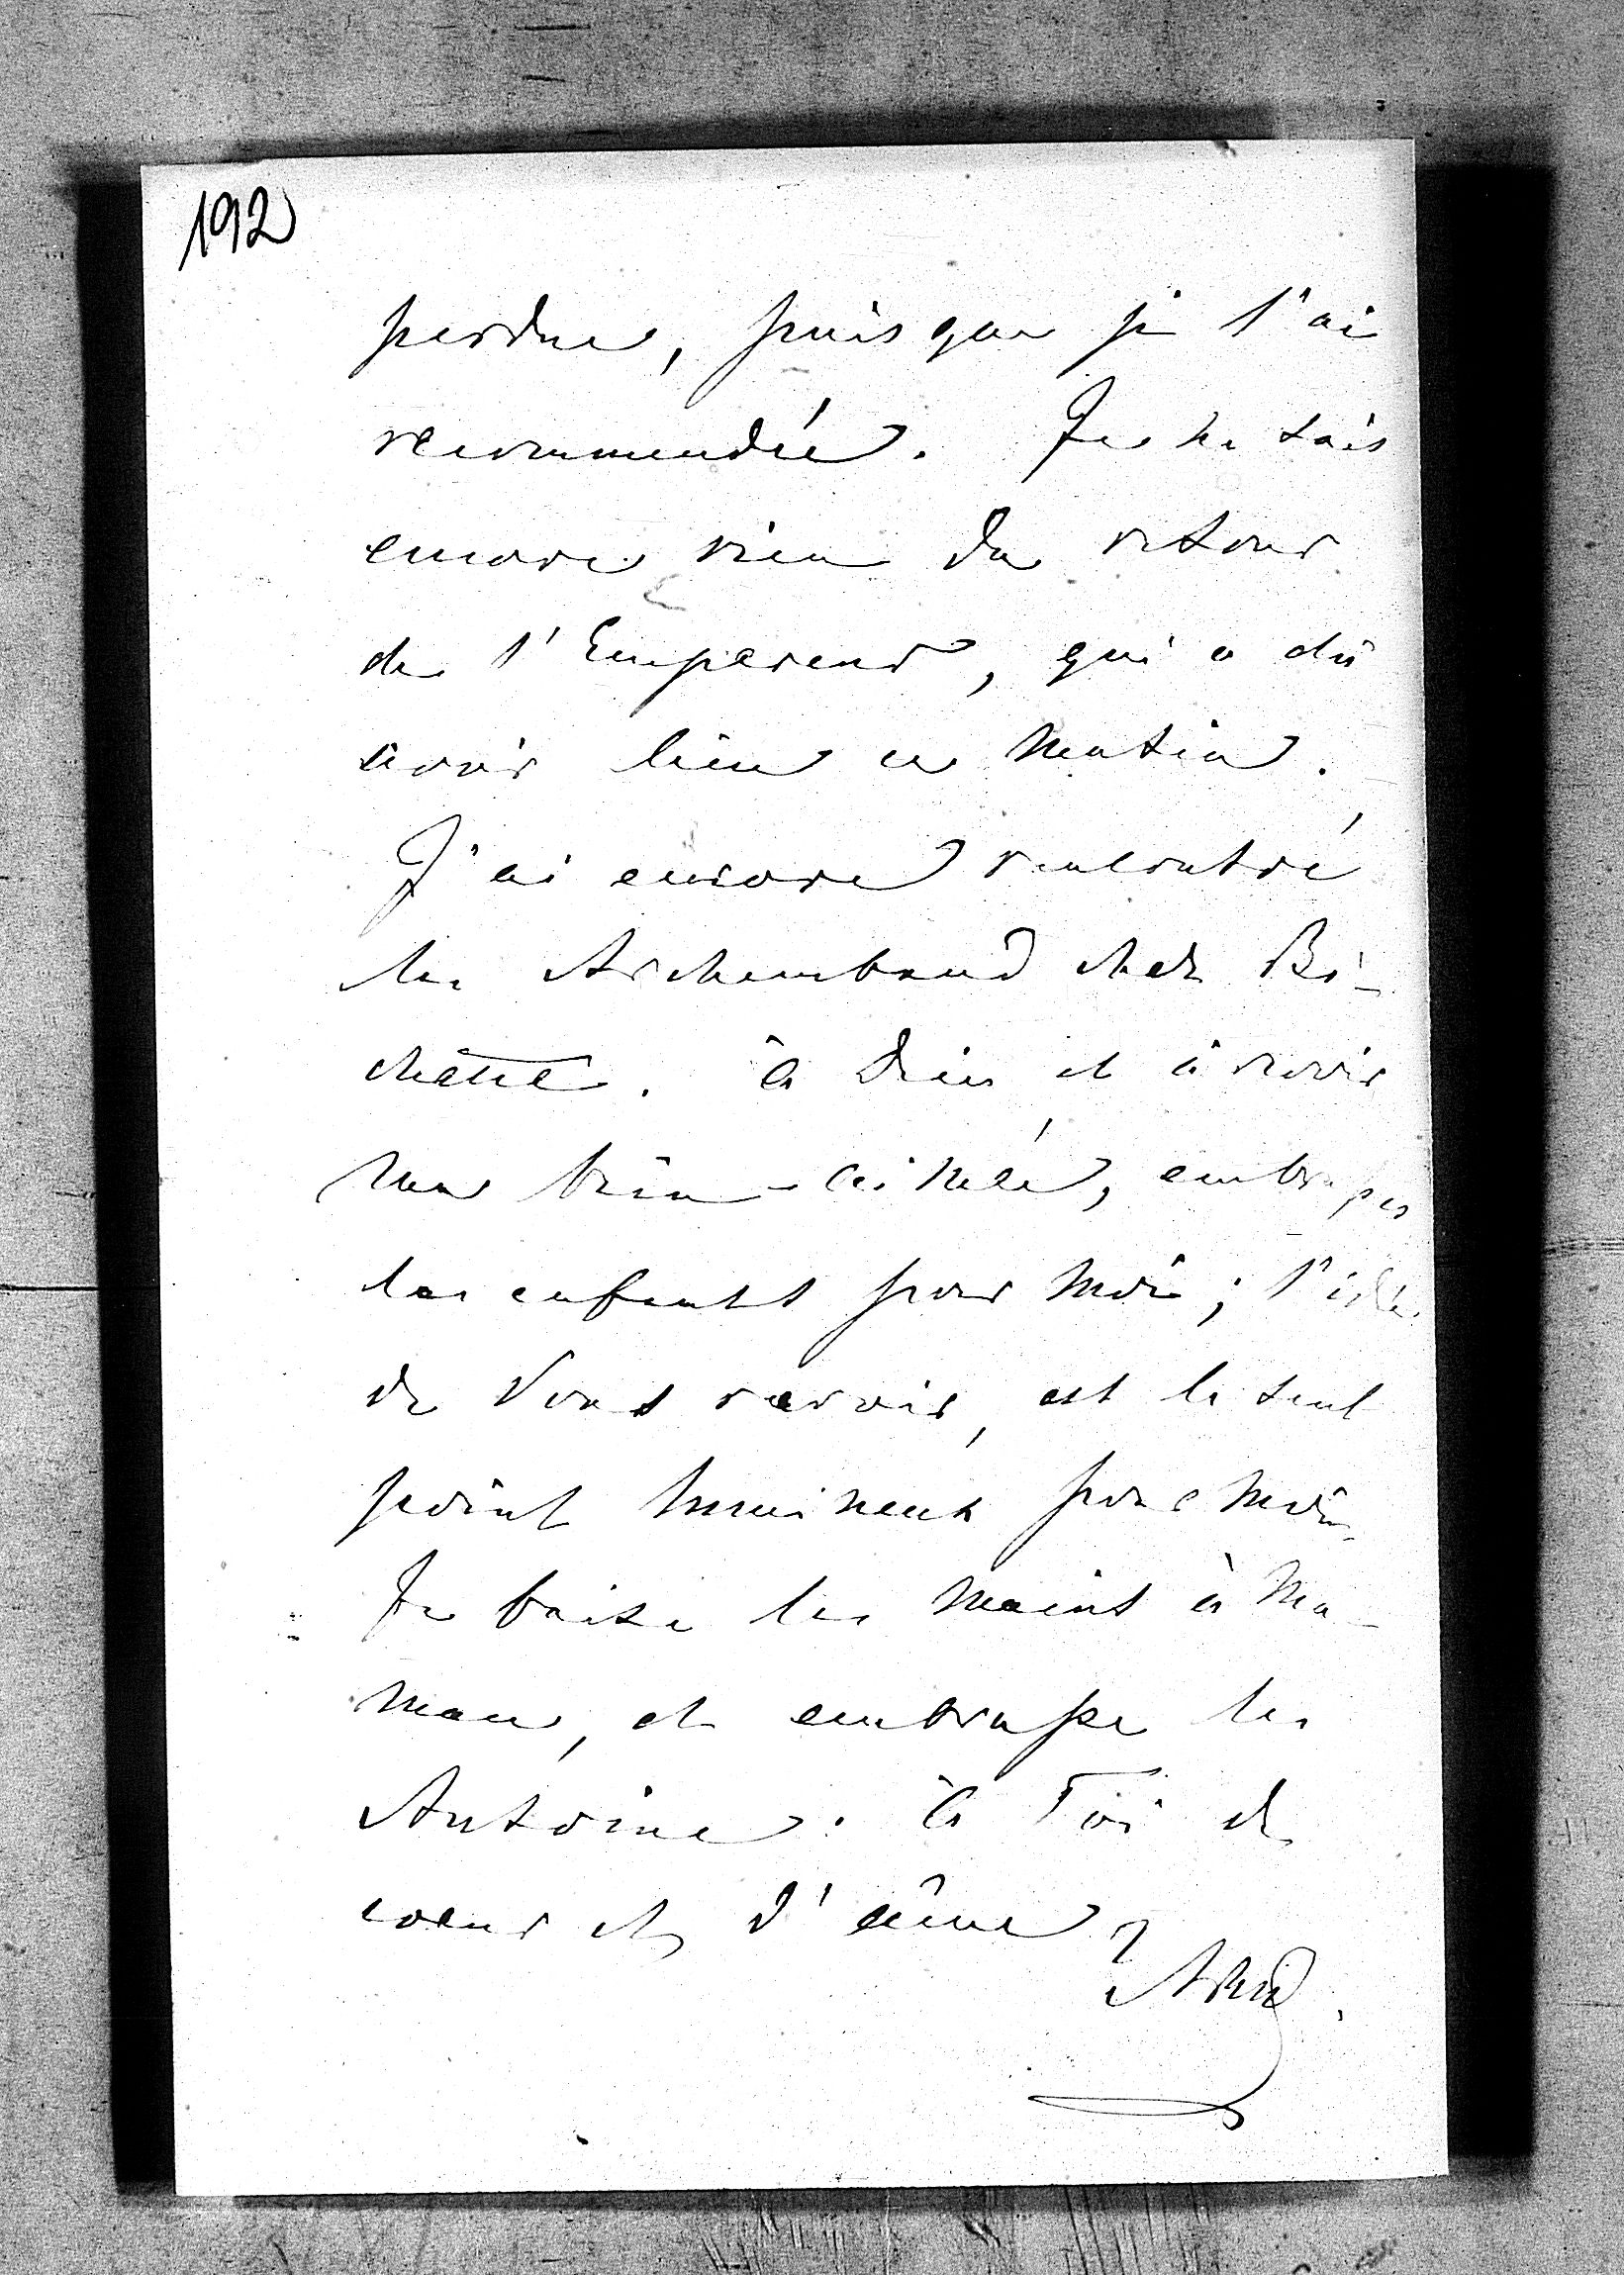 192
perdue, puisque je l'ai
recommendée. Je ne sais
encore rien du retour
de l'Empereur, qui a dû
avoir lieu ce matin.
J'ai encore rencontré
les Archembaud chez Bi-
chette. à Dieu, et à revoir
ma bien-aimée, embrasses
les enfants pour moi; l'idée
de Vous revoir, est le seul
point lumineux pour moi.
Je baise les mains à Ma-
man, et embrasse les
Antoine. à Toi de
coeur et d'âme